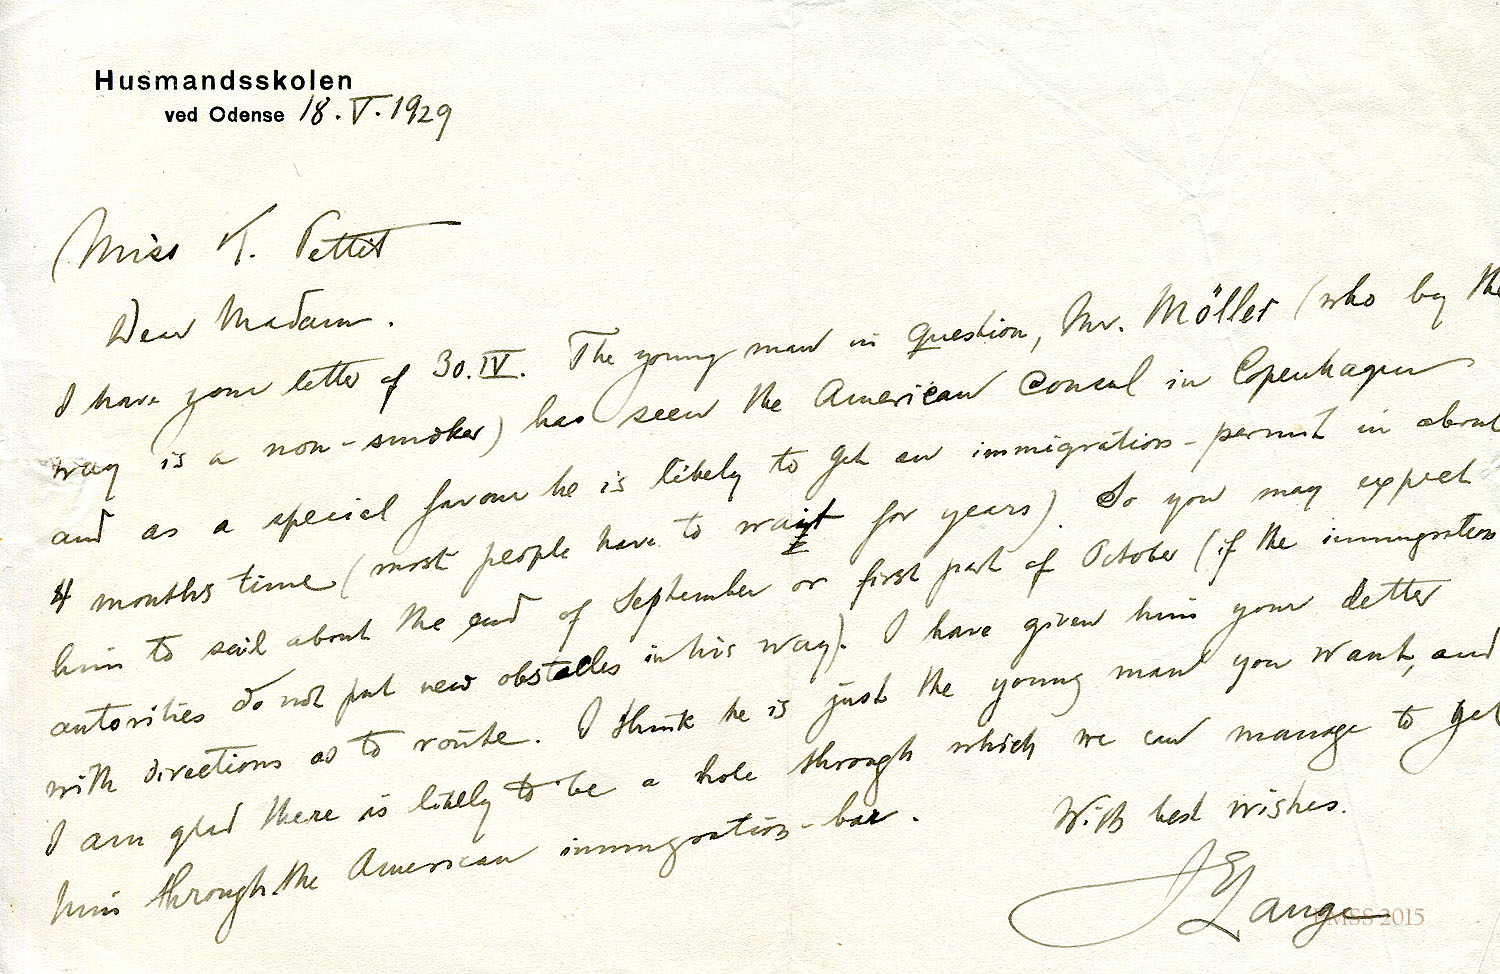 Husmandsskolen
ved Odense 18.V.1929
Miss K. Pettit
Dear Madam.
I have your letter of 30.IV. The young man in question, Mr. Möller (who by the
way is a non-smoker) has seen the American Consul in Copenhagen
and as a special favour he is likely to get an immigration-permit in about
4 months time (most people have to wait for years). So you may expect
him to sail about the end of September or first part of October (if the immigration
autorities do not put new obstacles in his way). I have given him your letter
with directions as to route. I think he is just the young man you want, and
I am glad there is likely to be a hole through which we can manage to get
him through the American immigration-bar.
With best wishes.
J E Lange
PMSS 2015